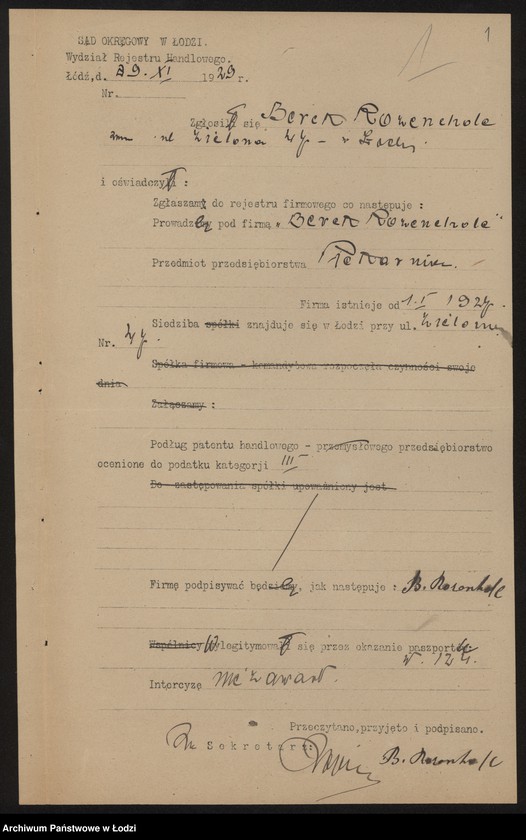 1
SĄD OKRĘGOWY W ŁODZI.
Wydział Rejestru Handlowego.
Łódź, d. 29. XI 1929 r.
Nr.
Zgłosił się Berek Rozenholc
zam. ul Zielona 27 - w Łodzi
i oświadczył :
Zgłaszam do rejestru firmowego co następuje :
Prowadzę pod firmą "Berek Rozenholc"
Przedmiot przedsiębiorstwa Piekarnia.
Firma istnieje od 1. I 1927.
Siedziba spółki znajduje się w Łodzi przy ul. Zielona
Nr. 27.
Spółka firmowa - komandytowa rozpoczęła czynności swoje
dnia
Załączamy :
Podług patentu handlowego - przemysłowego przedsiębiorstwo
ocenione do podatku kategorji III
Do zastępowania spółki upoważniony jest
Firmę podpisywać będę, jak następuje : B. Rosenholc
Wspólnicy Wylegitymował się przez okazanie paszportu
Intercyzę nie zawarł.
Przeczytano, przyjęto i podpisano.
Za Sekretarz:
B. Rosenholc
Archiwum Państwowe w Łodzi